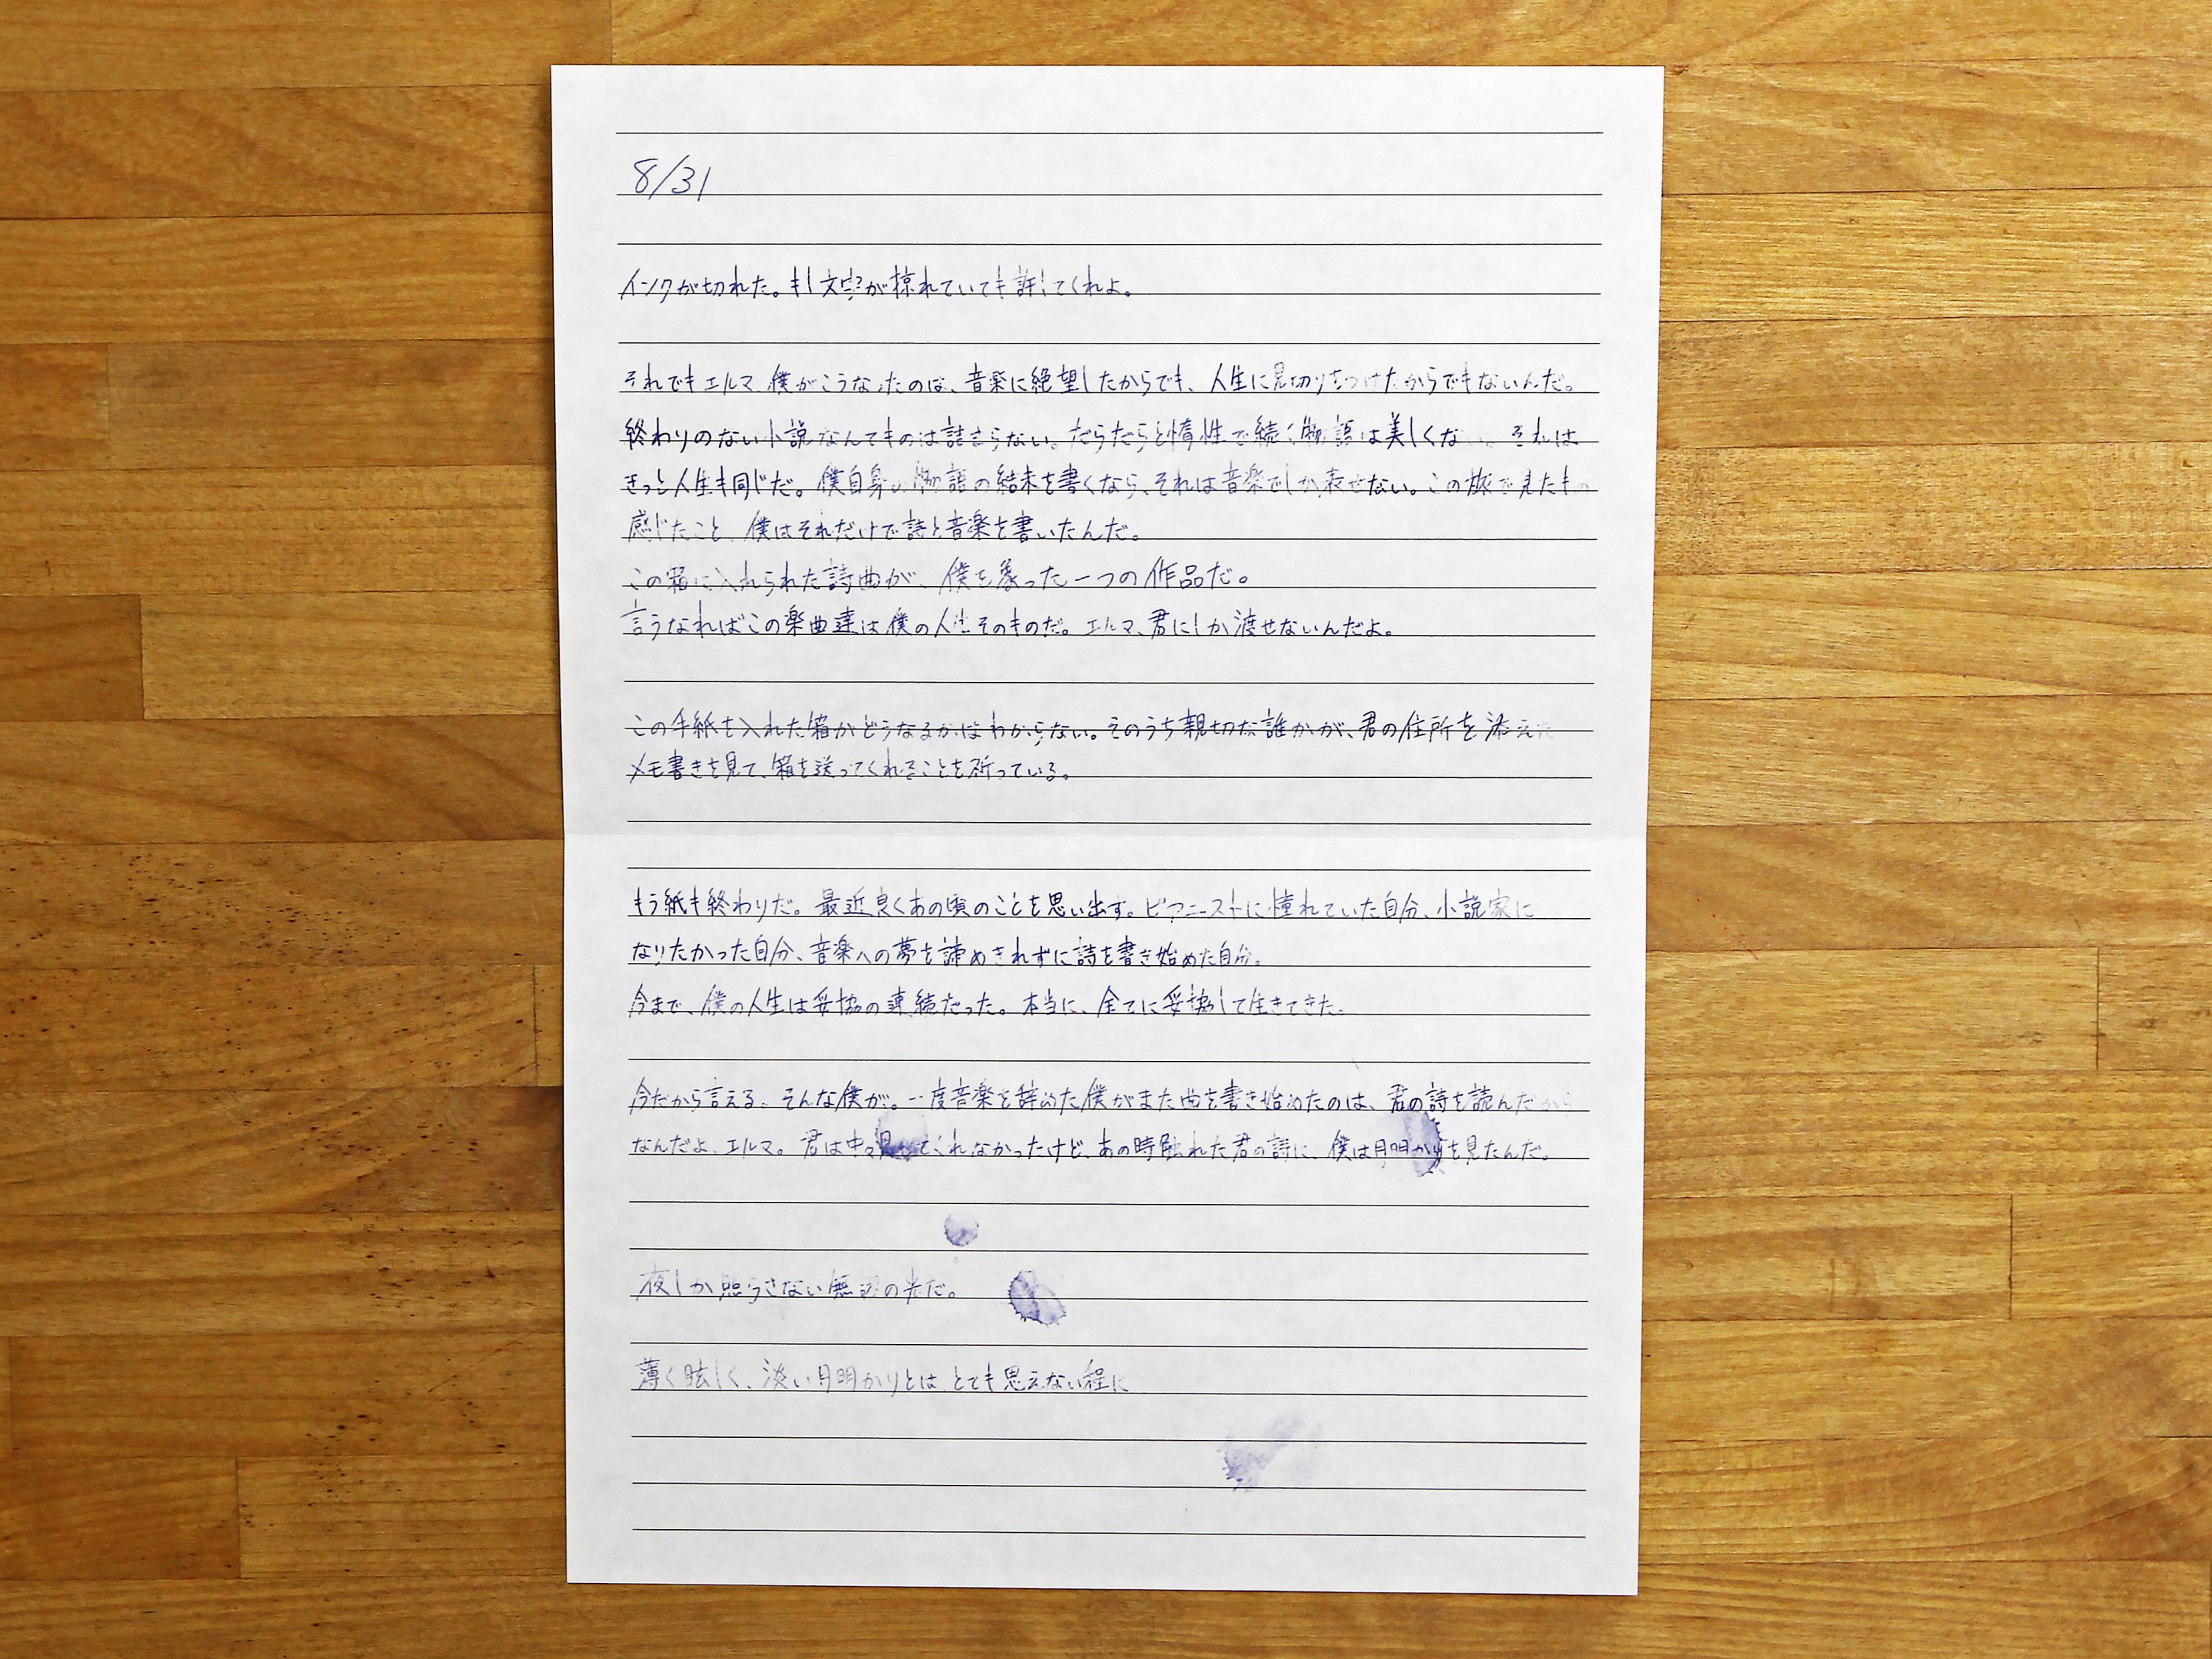 8/31
インクが切れた。もし文字が掠れていても許してくれよ。
それでもエルマ、僕がこうなったのは、音楽に絶望したからでも、人生に見切りをつけたからでもないんだ。
終わりのない小説なんてものは詰まらない。だらだらと惰性で続く物語は美しくない。それは
きっと人生も同じだ。僕自身の物語の結末を書くなら、それは音楽でしか表せない。この旅で見たもの
感じたこと、僕はそれだけで詩と音楽を書いたんだ。
この箱に入れられた詩曲が、僕を象った一つの作品だ。
言うなればこの楽曲達は僕の人生そのものだ。エルマ、君にしか渡せないんだよ。
この手紙を入れた箱がどうなるかはわからない。そのうち親切な誰かが、君の住所を添えた
メモ書きを見て、箱を送ってくれることを祈っている。
もう紙も終わりだ。最近良くあの頃のことを思い出す。ピアニストに憧れていた自分、小説家に
なりたかった自分、音楽への夢を諦めきれずに詩を書き始めた自分。
今まで、僕の人生は妥協の連続だった。本当に、全てに妥協して生きてきた。
今だから言える。そんな僕が。一度音楽を辞めた僕がまた曲を書き始めたのは、君の詩を読んだから
なんだよ、エルマ。君は中々見せてくれなかったけど、あの時触れた君の詩に、僕は月明かりを見たんだ。
夜しか照らさない無謬の光だ。
薄く眩しく、淡い月明かりとは、とても思えない程に